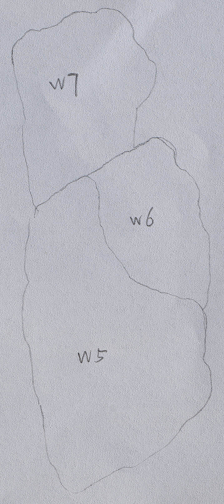 W7
W6
W5